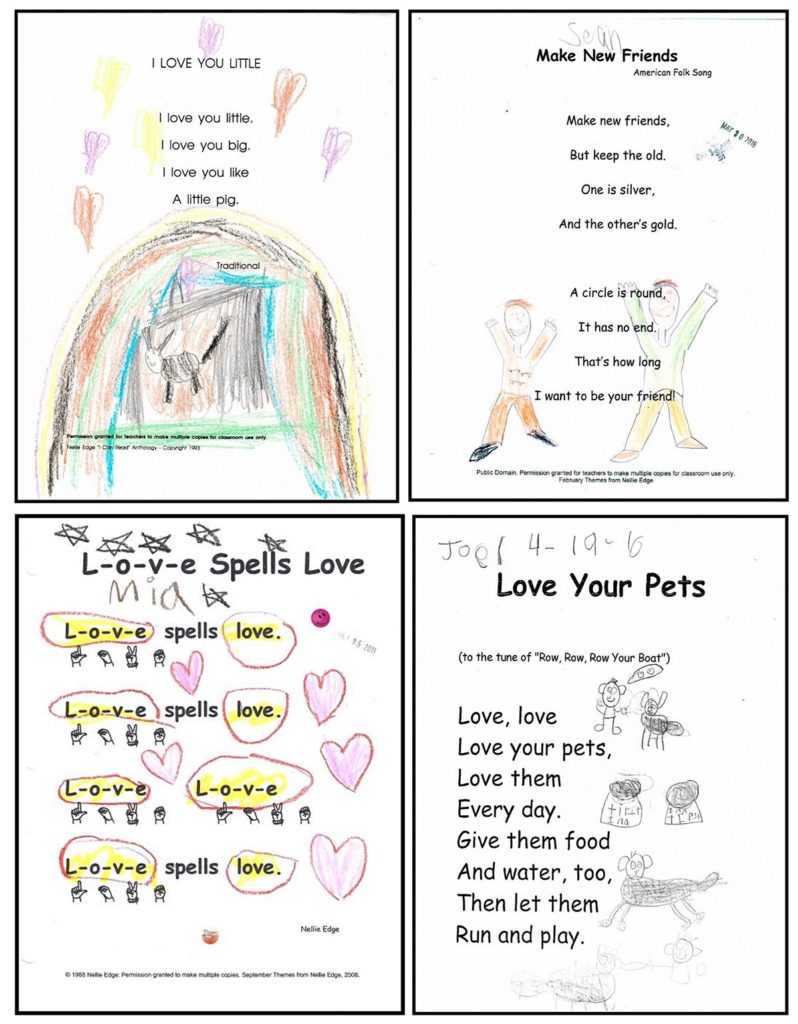 I LOVE YOU LITTLE
I love you little.
I love you big.
I love you like
A little pig.
Traditional
Permission granted for teachers to make multiple copies for classroom use only.
Nellie Edge "I Can Read" Anthology - Copyright 1993
Sean
Make New Friends
American Folk Song
Make new friends,
MAY 20 2016
But keep the old.
One is silver,
And the other's gold.
A circle is round,
It has no end.
That's how long
I want to be your friend!
Public Domain. Permission granted for teachers to make multiple copies for classroom use only.
February Themes from Nellie Edge
L-o-v-e Spells Love
Mia
L-o-v-e spells love.
L-o-v-e spells love.
L-o-v-e L-o-v-e
L-o-v-e spells love.
Nellie Edge
© 1988 Nellie Edge: Permission granted to make multiple copies. September Themes from Nellie Edge, 2006.
Joel 4-19-6
Love Your Pets
(to the tune of "Row, Row, Row Your Boat")
Love, love
Love your pets,
Love them
Every day.
Give them food
And water, too,
Then let them
Run and play.